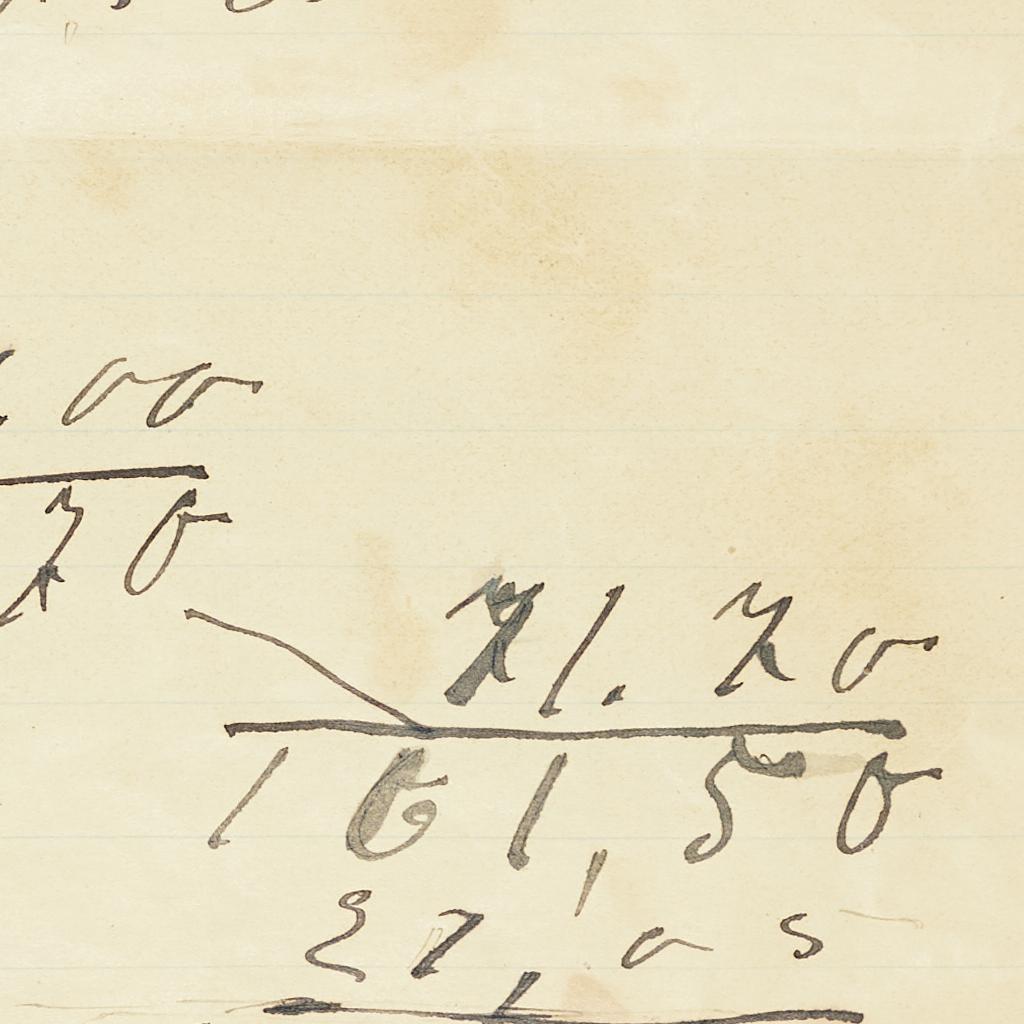 00
70
71.70
161,50
27,05